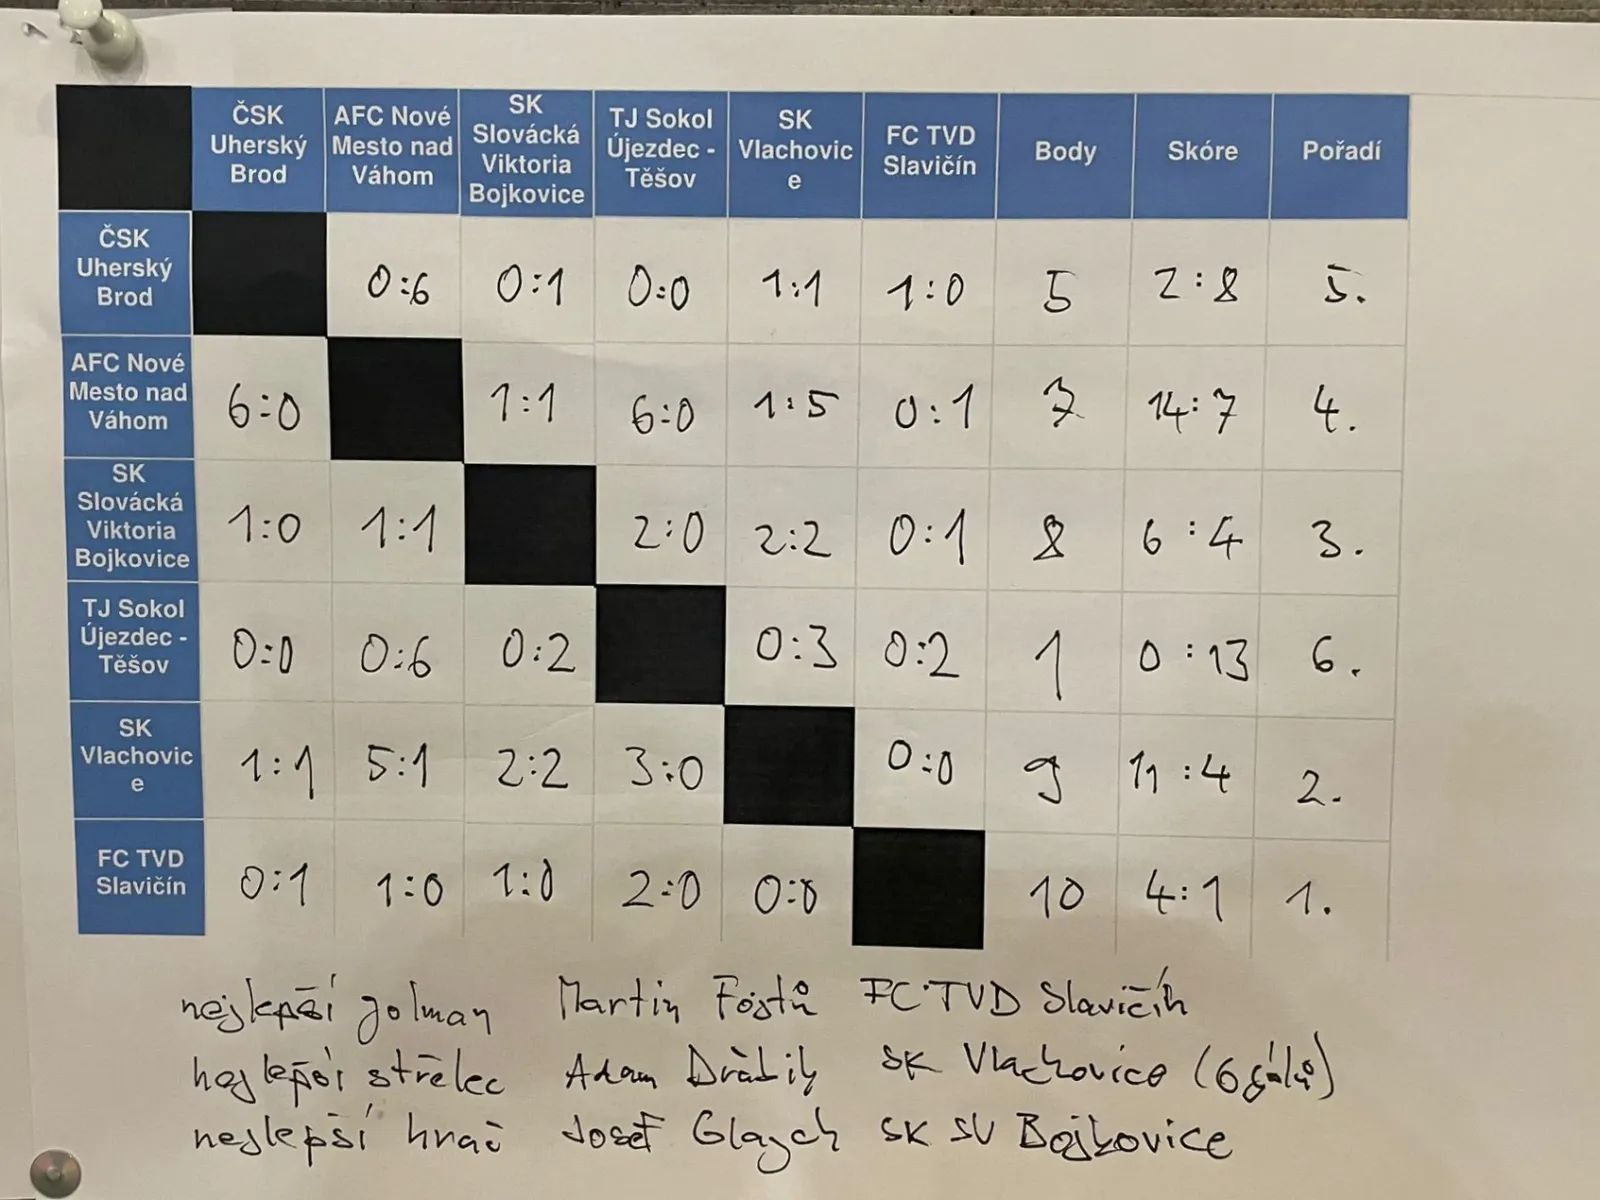 ČSK Uherský Brod AFC Nové Mesto nad Váhom SK Slovácká Viktoria Bojkovice TJ Sokol Újezdec - Těšov SK Vlachovice FC TVD Slavičín Body Skóre Pořadí
ČSK Uherský Brod 0:6 0:1 0:0 1:1 1:0 5 2:8 5.
AFC Nové Mesto nad Váhom 6:0 1:1 6:0 1:5 0:1 7 14:7 4.
SK Slovácká Viktoria Bojkovice 1:0 1:1 2:0 2:2 0:1 8 6:4 3.
TJ Sokol Újezdec - Těšov 0:0 0:6 0:2 0:3 0:2 1 0:13 6.
SK Vlachovice 1:1 5:1 2:2 3:0 0:0 9 11:4 2.
FC TVD Slavičín 0:1 1:0 1:0 2:0 0:0 10 4:1 1.
nejlepší golman Martin Fojtů FC TVD Slavičín
nejlepší střelec Adam Drábily SK Vlachovice (6 gólů)
nejlepší hráč Josef SK SV Bojkovice